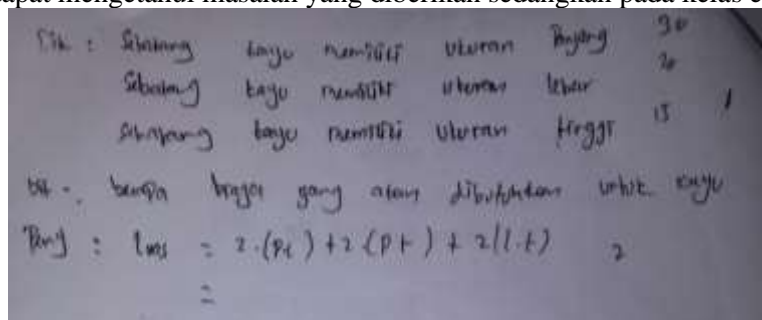 dapat mengetahui masalah yang diberikan sedangkan pada kelas
Dik : Sebatang kayu memiliki ukuran Panjang 30
Sebatang kayu memiliki ukuran lebar 20
Sebatang kayu memiliki ukuran tinggi 15 1
Dit : berapa yang akan dibutuhkan untuk kayu
Peny : luas = 2.(pl) + 2(pt) + 2(l.t) 2
=